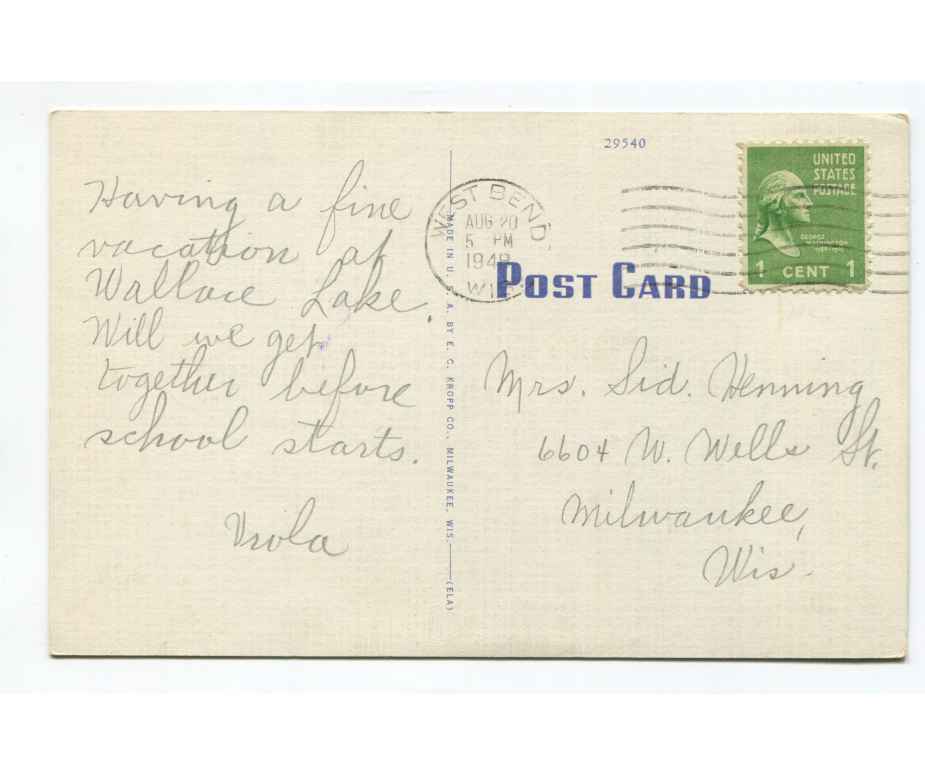 Having a fine
vacation at
Wallace Lake.
Will we get
together before
school starts.
MADE IN U. S. A. BY E. C. KROPP CO., MILWAUKEE, WIS. (ELA)
29540
WEST BEND,
AUG 20
5 PM
WIS
UNITED
STATES
POSTAGE
GEORGE
WASHINGTON
1 CENT 1
POST CARD
Mrs. Sid. Henning
6604 W. Wells St.
Milwaukee,
Wis.